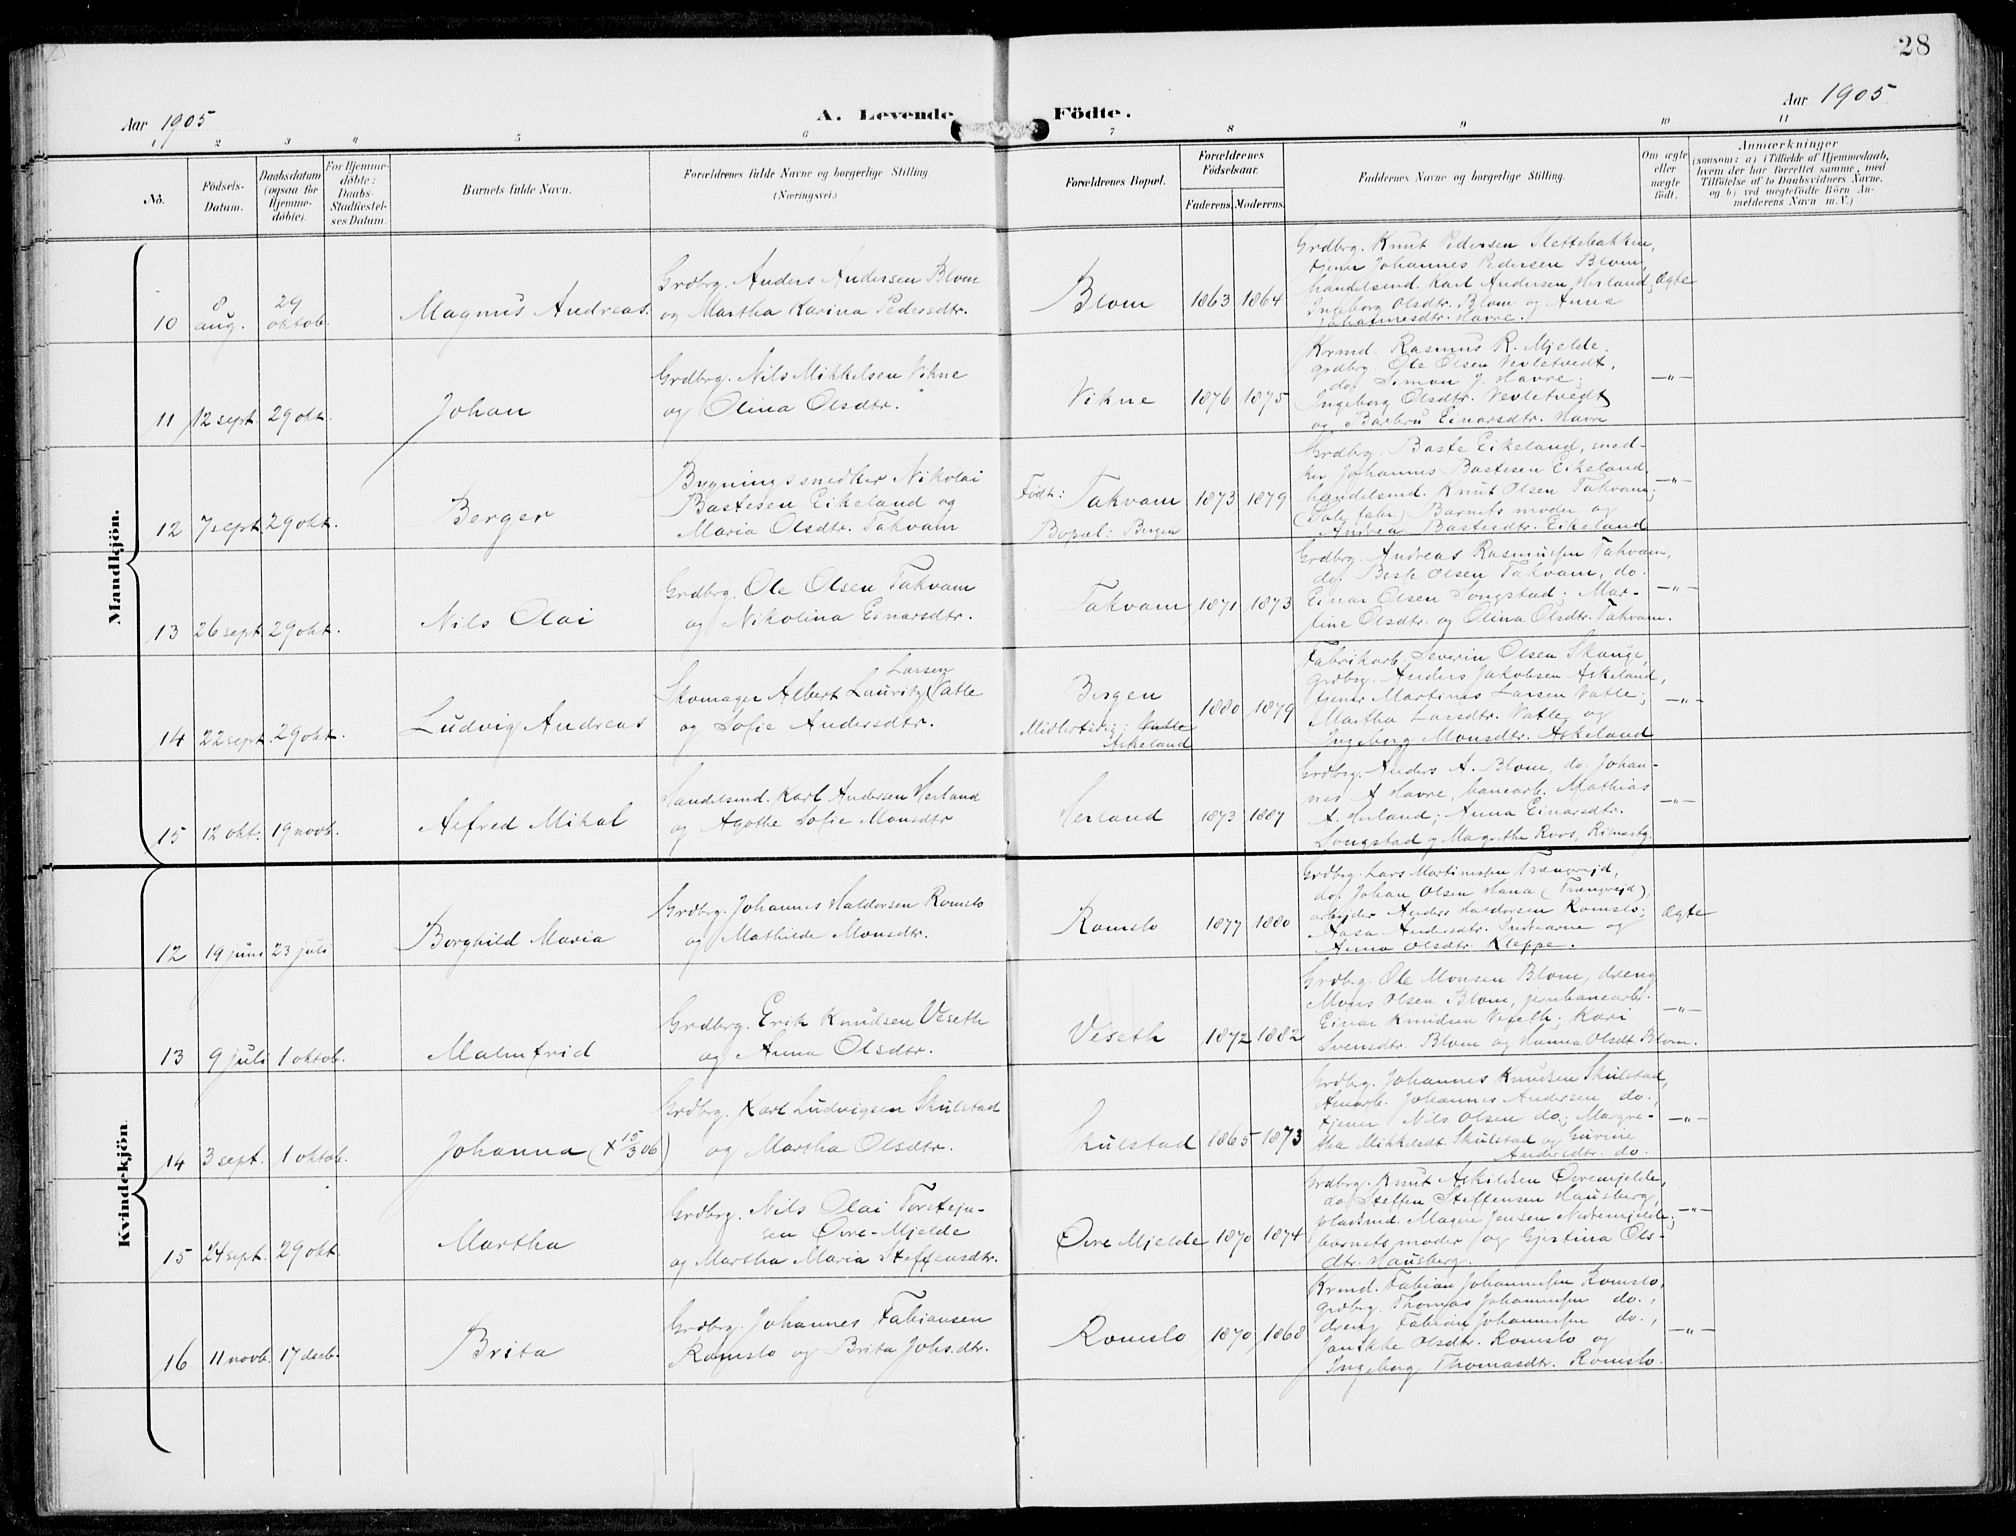 28
Aar 1905
A. Levende Födte.
Aar 1905
1 2 3 4 5 6 7 8 9 10 11
No.
Födsels-
Datum.
Daabsdatum
(ogsaa for
Hjemme-
døbte).
For Hjemme-
døbte:
Daabs-
Stadfæstel-
ses Datum.
Barnets fulde Navn.
Forældrenes fulde Navne og borgerlige Stilling.
(Næringsvei.)
Forældrenes Bopæl.
Forældrenes
Fødselsaar.
Faderens. Moderens.
Faddernes Navne og borgerlige Stilling.
Om ægte
eller
uægte
født.
Anmærkninger
(saasom: a) i Tilfælde af Hjemmedaab,
hvem der har forrettet samme, med
Tilføielse af to Daabsvidners Navne,
og b) ved uægtefødte Børn An-
melderens Navn m. V.)
Mandkjön.
10
8
aug.
29
oktob.
Magnus Andreas.
Grdbrg. Anders Andersen Blom
og Martha Karina Pedersdtr.
Blom
1863
1864
Grdbrg. Knut Pedersen Slettebakken,
tjener Johannes Pedersen Blom,
handelsmd. Karl Andersen Herland;
Ingeborg Olsdtr. Blom og Anna
Johannesdtr. Havre.
Ægte
11
12 sept.
29 okt.
Johan
Grdbrg. Nils Mikkelsen Vikne
og Olina Olsdtr.
Vikne
1876
1875
Krmd. Rasmus R. Mjelde,
grdbrg. Ole Olsen Vevletvedt,
do. Simon J. Havre;
Ingeborg Olsdtr. Vevletvedt
og Barbru Einarsdtr. Havre
—"—
12
7 sept.
29 okt.
Berger
Bygningssnedker Nikolai
Bastesen Eikeland og
Maria Olsdtr. Takvam
Født: Takvam
Bopæl: Bergen
1873
1879
Grdbrg. Baste Eikeland, sned-
ker Johannes Bastesen Eikeland
handelsmd. Knut Olsen Takvam;
Barnets moder og
Andrea Bastesdtr. Eikeland
—"—
13
26 sept.
29 okt.
Nils Olai
Grdbrg. Ole Olsen Takvam
og Nikolina Einarsdtr.
Takvam
1871
1873
Grdbrg. Andreas Rasmussen Takvam,
do. Besse Olsen Takvam, do.
Einar Olsen Songstad; Mar-
tine Olsdtr. og Olina Olsdtr. Takvam.
—"—
14
22 sept.
29 okt.
Ludvig Andreas
Larsen
Skomager Albert Lauritz (Vatle
og Sofie Andersdtr.
Bergen
Midlertidig: Vatle
Askeland
1880
1879
Fabrikarb. Severin Olsen Skauge,
grdbrg. Anders Jakobsen Askeland,
tjener Martines Larsen Vatle;
Martha Larsdtr. Vatle og
Ingeborg Monsdtr. Askeland
—"—
15
12 okt.
19 novb.
Alfred Mikal
Handelsmd. Karl Andersen Herland
og Agothe Sofie Monsdtr
Herland
1873
1887
Grdbrg. Anders A. Blom, do. Johan-
nes A Havre, banearb. Mathias
A. Herland; Anna Einarsdtr.
Songstad og Magrethe Roos,
—"—
Kvindekjön.
12
19 juni
23 juli
Borghild Maria
Grdbrg. Johannes Haldorsen Romslo
og Mathilde Monsdtr.
Romslo
1877
1880
Grdbrg. Lars Martinussen Trængreid,
do. Johan Olsen Hana (Trængreid),
arbeider Anders Haldorsen Romslo;
Aasa Andersdtr. Indrearne og
Anna Olsdtr. Kleppe.
Ægte
13
9 juli
1 oktob.
Malmfrid
Grdbrg. Erik Knudsen Veseth
og Anna Olsdtr.
Veseth
1872
1882
Grdbrg. Ole Monsen Blom, dreng
Mons Olsen Blom, jernbanearbr.
Einar Knudsen Veseth; Kari
Svensdtr. Blom og Hanna Olsdt. Blom.
—"—
14
3 sept.
1 oktob.
Johanna (+ 15/3 06)
Grdbrg. Karl Ludvigsen Skulstad
og Martha Olsdtr.
Skulstad
1865
1873
Grdbrg. Johannes Knudsen Skulstad,
stenarb. Johannes Andersen do.,
tjener Nils Olsen do.; Magre-
tha Mikkelsdt. Skulstad og Gurine
Andersdtr. do.
—"—
15
24 sept.
29 okt.
Martha
Grdbrg. Nils Olai Torstejn-
sen Øvre-Mjelde
og Martha Maria Steffensdtr.
Øvre Mjelde
1870
1874
Grdbrg. Knut Askildsen Øvremjelde,
do. Steffen Steffensen Hausberg,
pladsmd. Magne Jensen Nedremjelde;
barnets moder og Gjertina Ols-
dtr. Hausberg.
—"—
16
11 novb.
17 decb.
Brita
Grdbrg. Johannes Fabiansen
Romslo og Brita Johs.dtr.
Romslo
1870
1868
Krmd. Fabian Johannessen Romslo,
grdbrg. Thomas Johannessen do.,
dreng Fabian Johannessen do.,
Jansikke Olsdtr. Romslo og
Ingeborg Thomasdtr. Romslo.
—"—